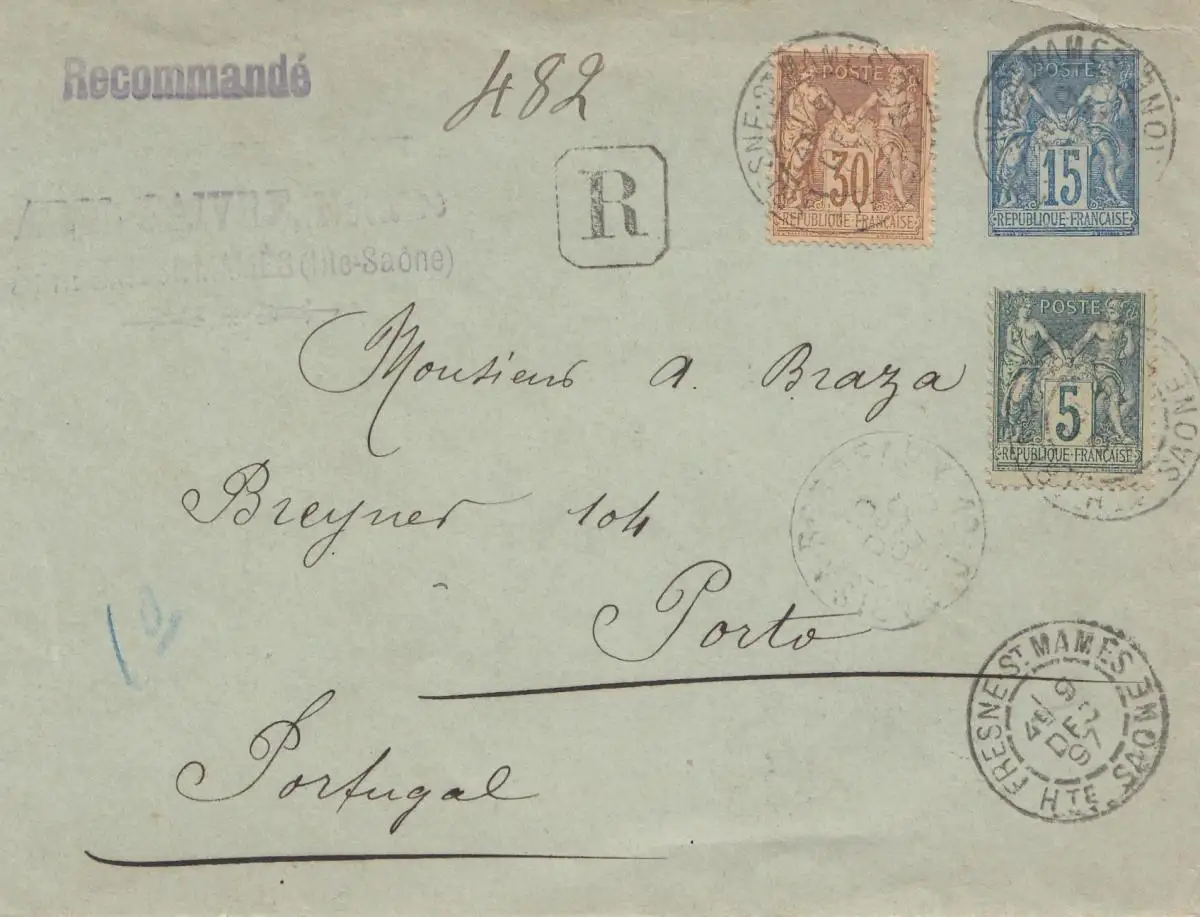 Recommandé
482
R
POSTE
30
REPUBLIQUE FRANÇAISE
POSTE
15
REPUBLIQUE FRANÇAISE
(Hte-Saône)
POSTE
5
REPUBLIQUE FRANÇAISE
Monsieur A. Braza
Breyner 104
Porto
Portugal
FRESNE-ST MAMÈS
HTE SAONE
9
DEC
97